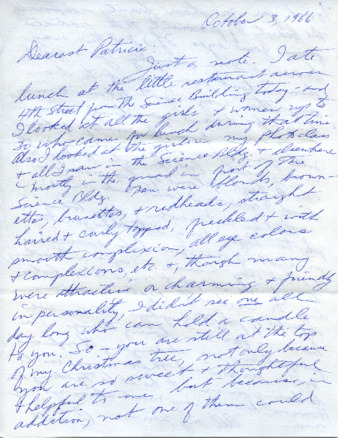 October 3, 1966
Dearest Patricia
Just a note. I ate
lunch at the little restaurant across
4th street from the Science Building today - and
I looked at all the girls & women up to
who came for lunch during that time
Also I looked at the girls in my class
& all I saw in the Science Bldg. & elsewhere
mostly in the quad in front of the
Science Bldg. There were blonds, brown-
ettes, brunettes, & redheads, straight
haired & curly topped, freckled & with
smooth complexion, all eye colors
& complexions, etc. &, though many
were attractive or charming & friendly
in personality, I didn't see one all
day long who can hold a candle
to you. So - you are still at the top
of my Christmas tree, not only because
you are so sweet & thoughtful
& helpful to me but because, in
addition, not one of them could